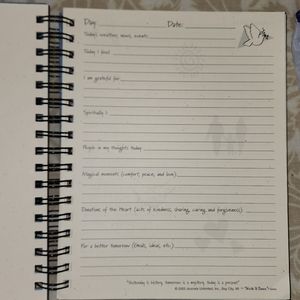 Day: Date:
Today's weather, news, events:
Today I feel
I am grateful for
Spiritually I
People in my thoughts today
Magical moments (comfort, peace, and love)
Donations of the Heart (acts of kindness, sharing, caring, and forgiveness)
For a better tomorrow (goals, ideas, etc.)
"Yesterday is history, tomorrow is a mystery, today is a present"
© 2003 Journals Unlimited, Inc., Bay City, MI "Write it Down"